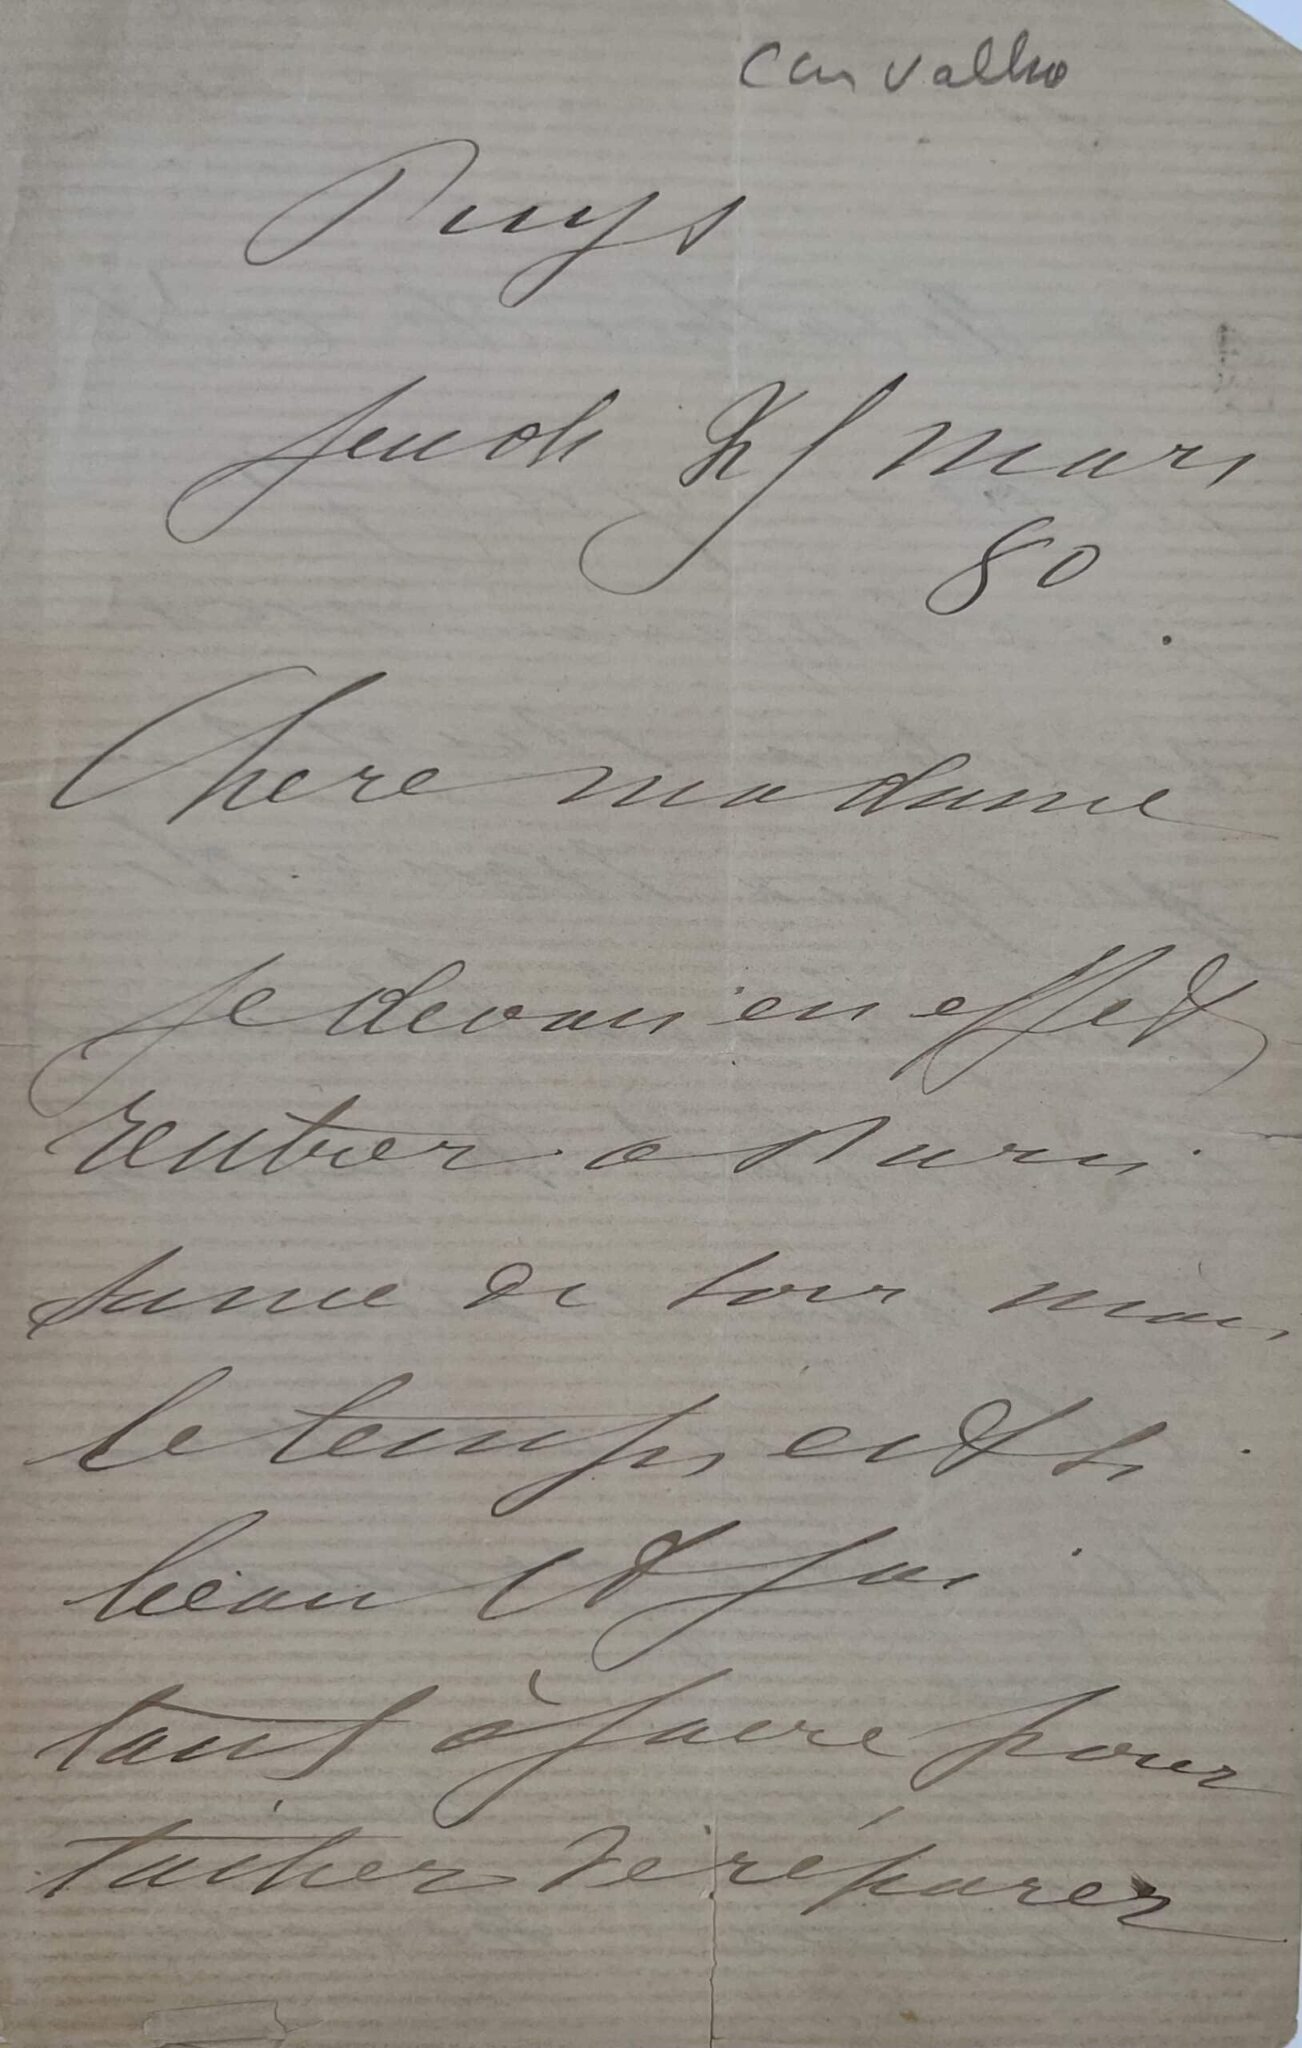 Carvalho
Puys
Jeudi 25 mars
80
Chere madame
je devais en effet
rentrer a Paris
same di soir mais
le temps est si
beau et j'ai
tant à faire pour
tacher de réparer